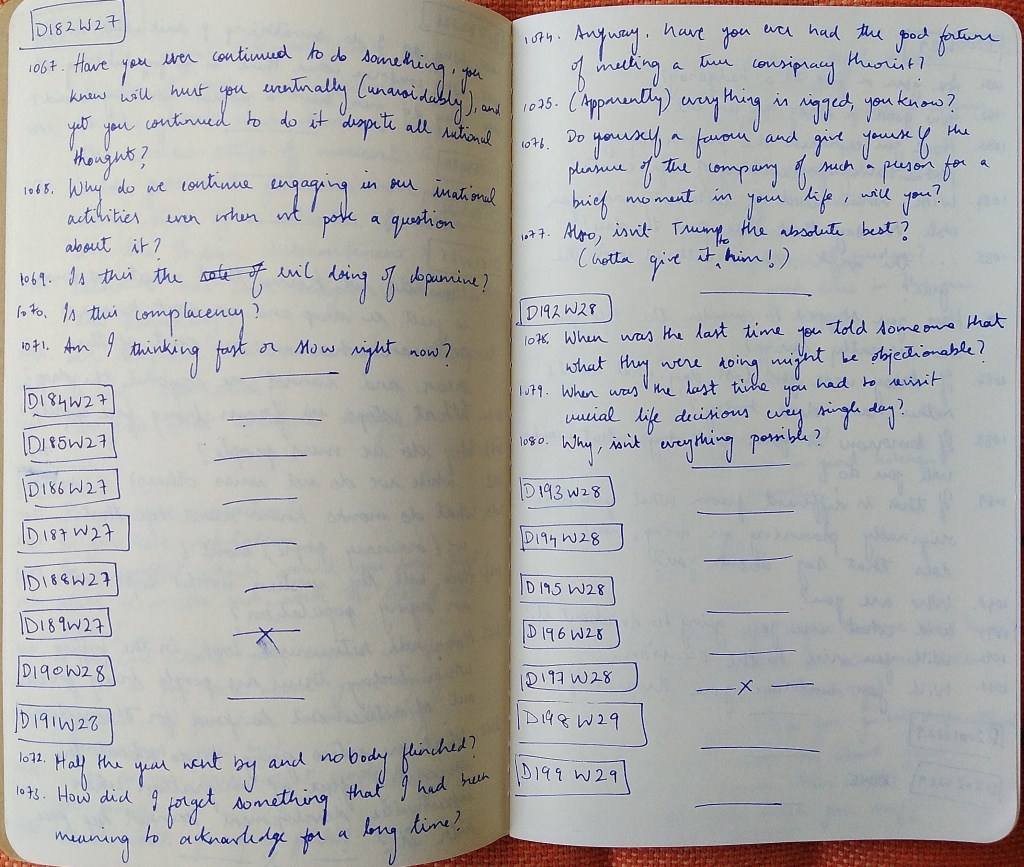 D182W27
1067. Have you ever continued to do something, you
knew will hurt you eventually (unavoidably), and
yet you continued to do it despite all rational
thought?
1068. Why do we continue engaging in our irrational
activities even when we pose a question
about it?
1069. Is this the role of evil doing of dopamine?
1070. Is this complacency?
1071. Am I thinking fast or slow right now?
D184W27
D185W27
D186W27
D187W27
D188W27
D189W27
D190W28
D191W28
1072. Half the year went by and nobody flinched?
1073. How did I forget something that I had been
meaning to acknowledge for a long time?
1074. Anyway, have you ever had the good fortune
of meeting a true consipracy theorist?
1075. (Apparently) everything is rigged, you know?
1076. Do yourself a favour and give yourself the
pleasure of the company of such a person for a
brief moment in your life, will you?
1077. Also, isn't Trump the absolute best?
(Gotta give it to him!)
D192W28
1078. When was the last time you told someone that
what they were doing might be objectionable?
1079. When was the last time you had to revisit
crucial life decisions every single day?
1080. Why, isn't everything possible?
D193W28
D194W28
D195W28
D196W28
D197W28
X
D198W29
D199W29